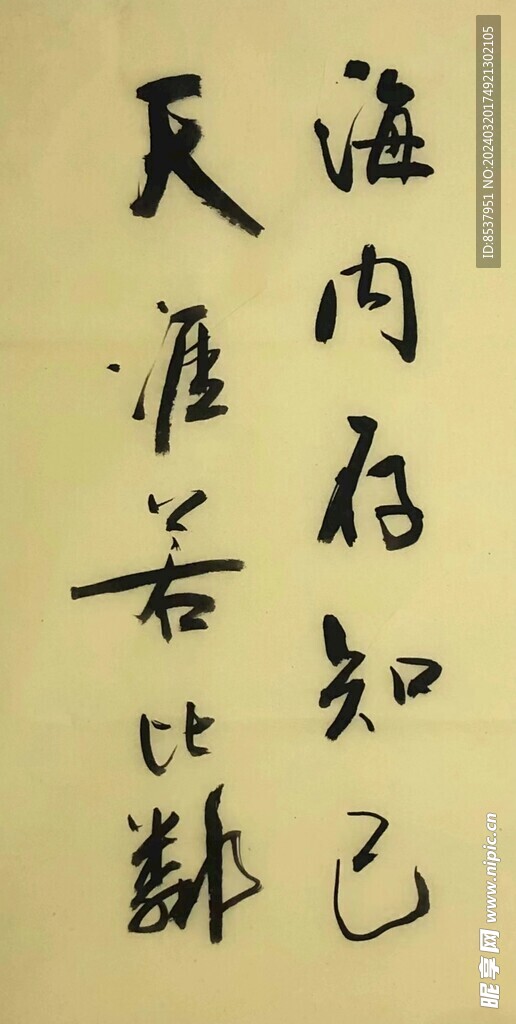 海内存知己
天涯若比鄰
ID:8537951 NO:20240320174921302105
昵享网 www.nipic.cn